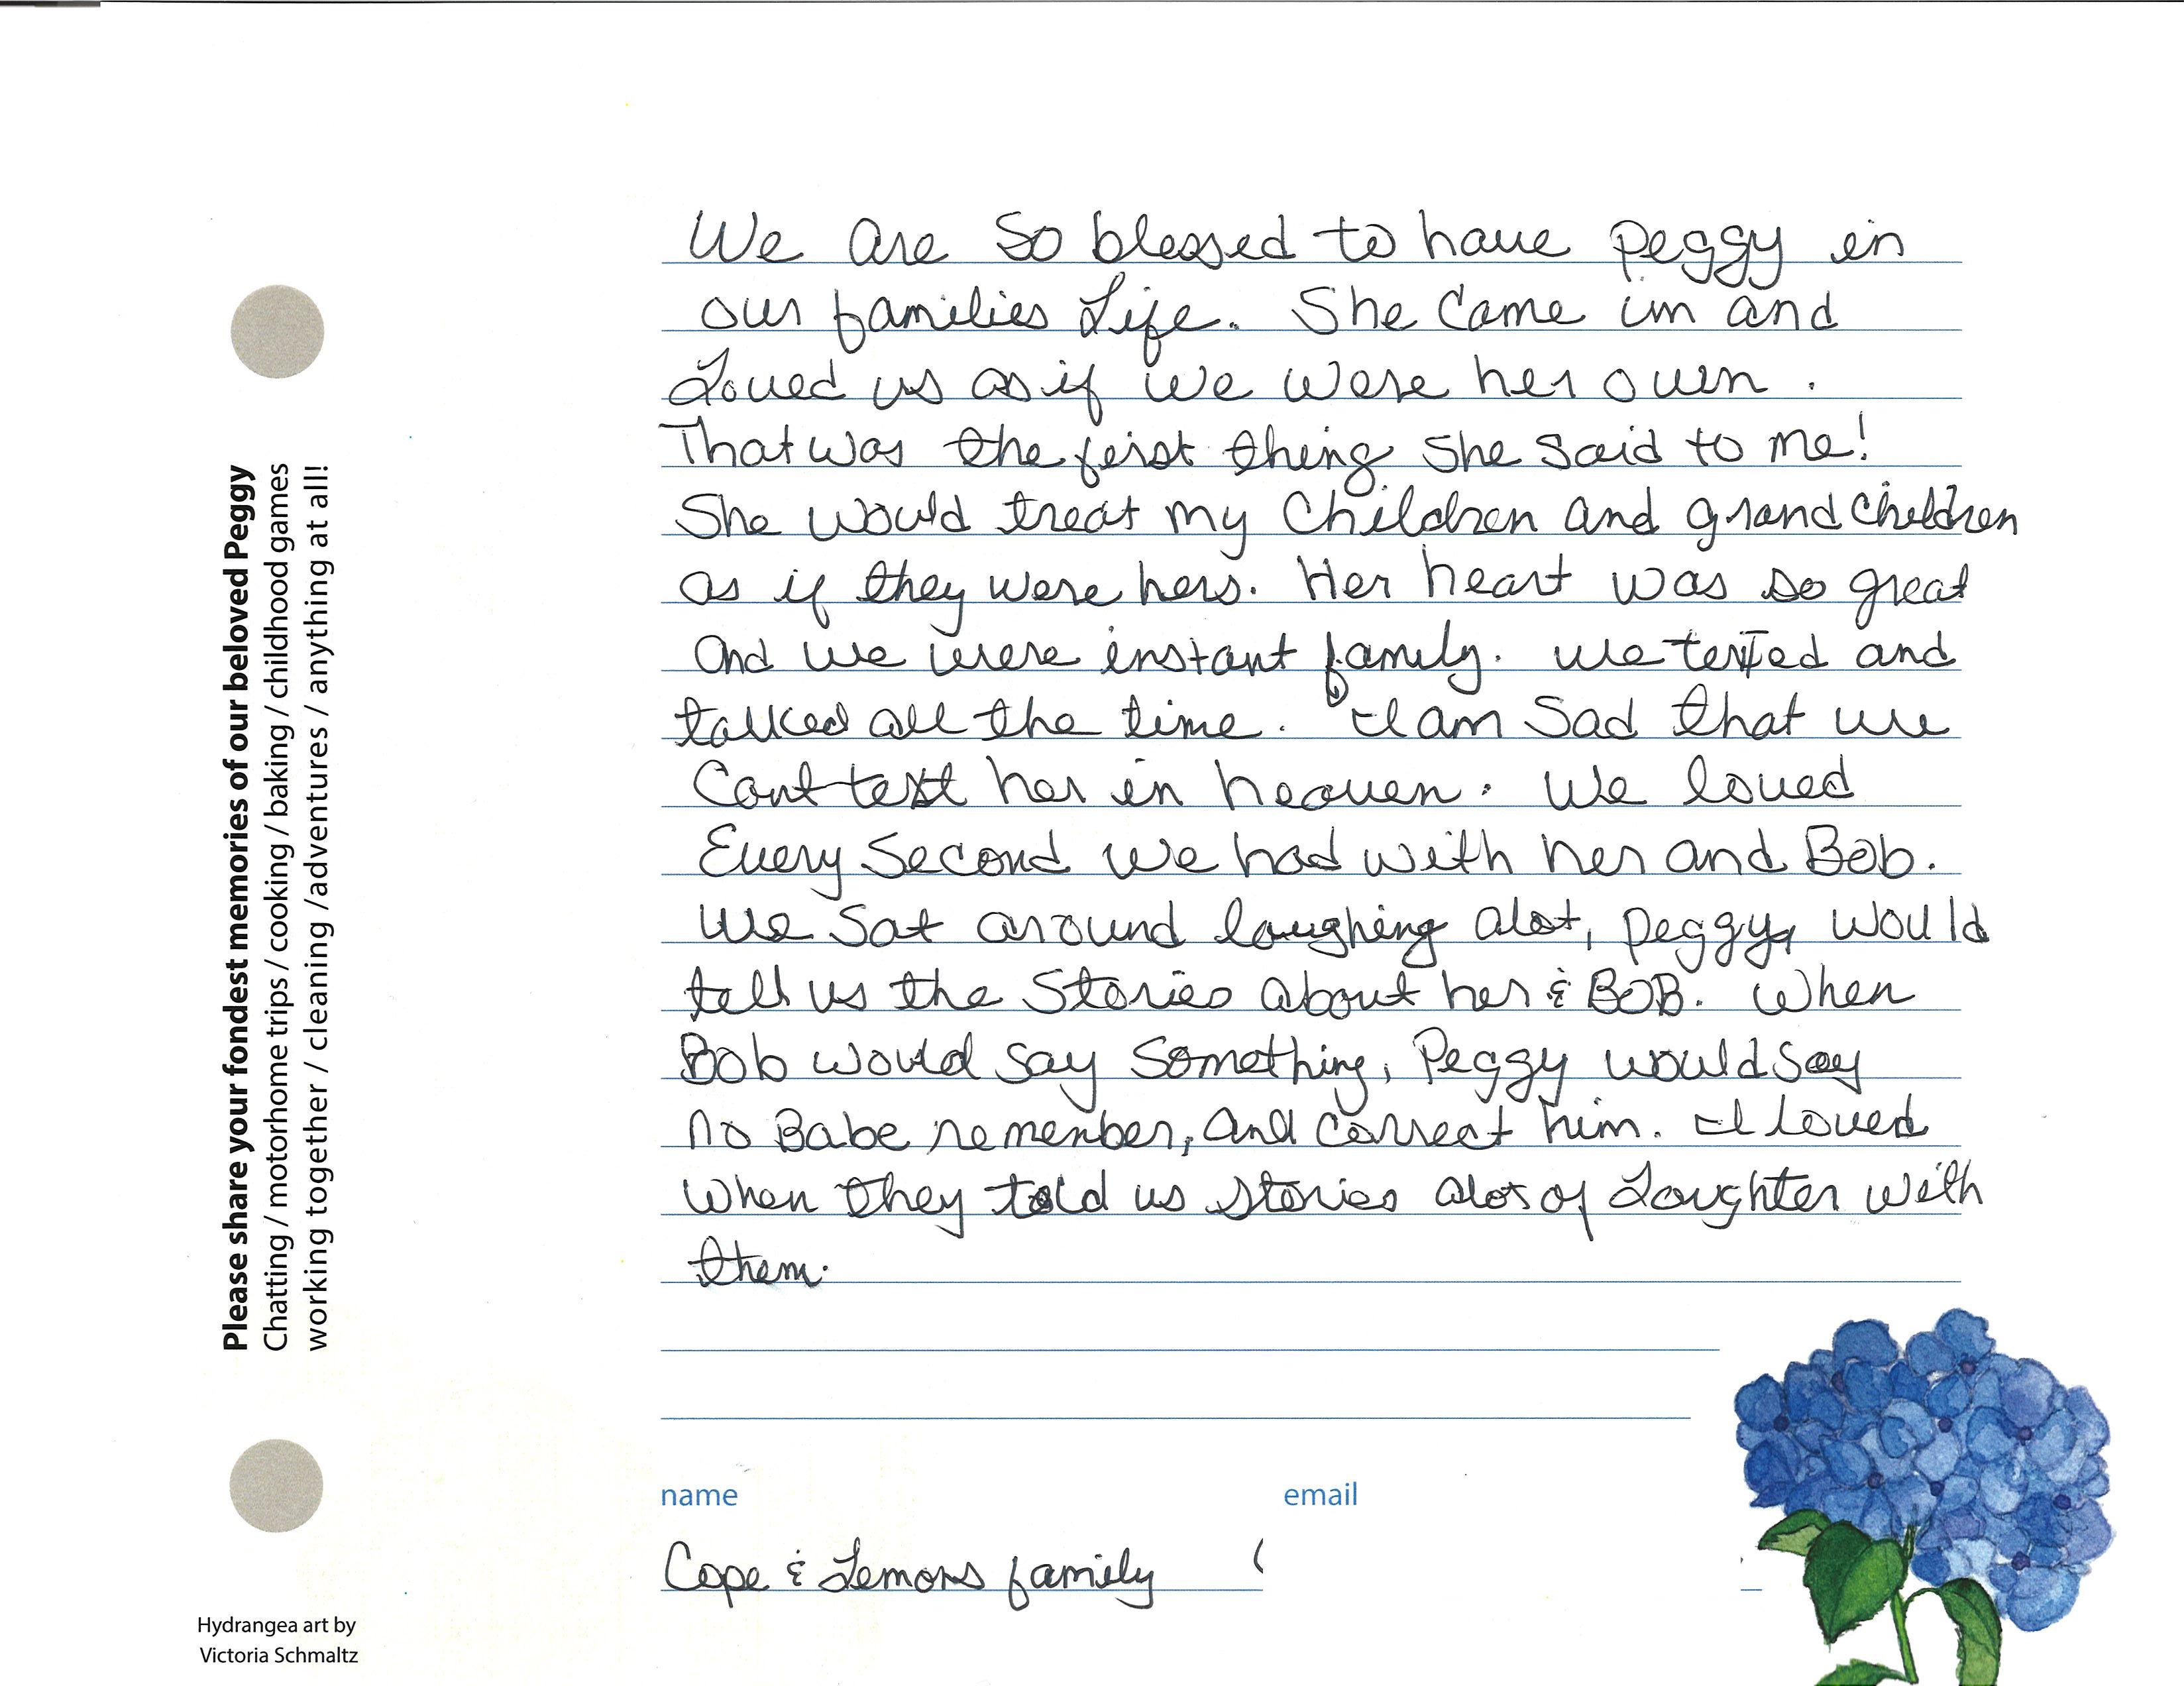 Please share your fondest memories of our beloved Peggy
Chatting / motorhome trips / cooking / baking / childhood games
working together / cleaning / adventures / anything at all!
We are so blessed to have peggy in
our families Life. She came in and
Loved us as if we were her own.
That was the first thing she said to me!
She would treat my Children and grandchildren
as if they were hers. Her heart was so great
and we were instant family. We texted and
talked all the time. I am sad that we
Cant text her in heaven. We loved
Every second we had with her and Bob.
We sat around laughing alot, peggy, would
tell us the stories about her & BOB. When
Bob would say something, Peggy would say
no Babe remember, and correct him. I loved
when they told us stories alot of Laughter with
them.
name
email
Cope & Lemons family
(
Hydrangea art by
Victoria Schmaltz